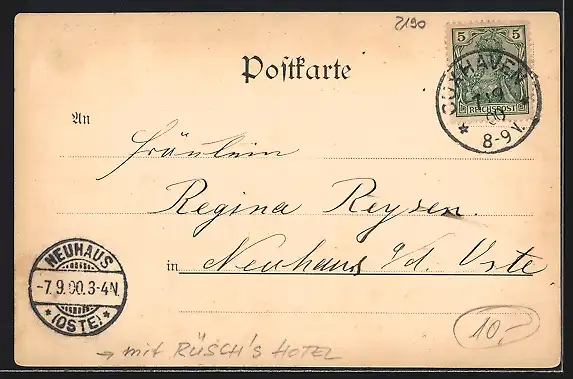 2190
Postkarte
5 5
REICHSPOST
CUXHAVEN
7/9
00
8-9V.
An
Fräulein
Regina Reysen.
in Neuhaus a/d. Oste
NEUHAUS
-7.9.00.3-4N.
* (OSTE) *
10.-
→ mit RÜSCH'S HOTEL